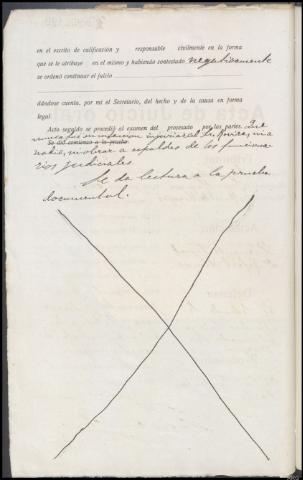 en el escrito de calificación y responsable civilmente en la forma
que se le atribuye en el mismo y habiendo contestado negativamente
se ordenó continuar el juicio
dándose cuenta, por mi el Secretario, del hecho y de la causa en forma
legal.
Acto seguido se procedió al examen del procesado por las partes. Que
nunca fué su intención injuriar al Sr. Juez, ni a
Se dió comienzo a la prueba
nadie, ni obrar a espaldas de los funciona-
rios judiciales
Se da lectura a la prueba
documental.